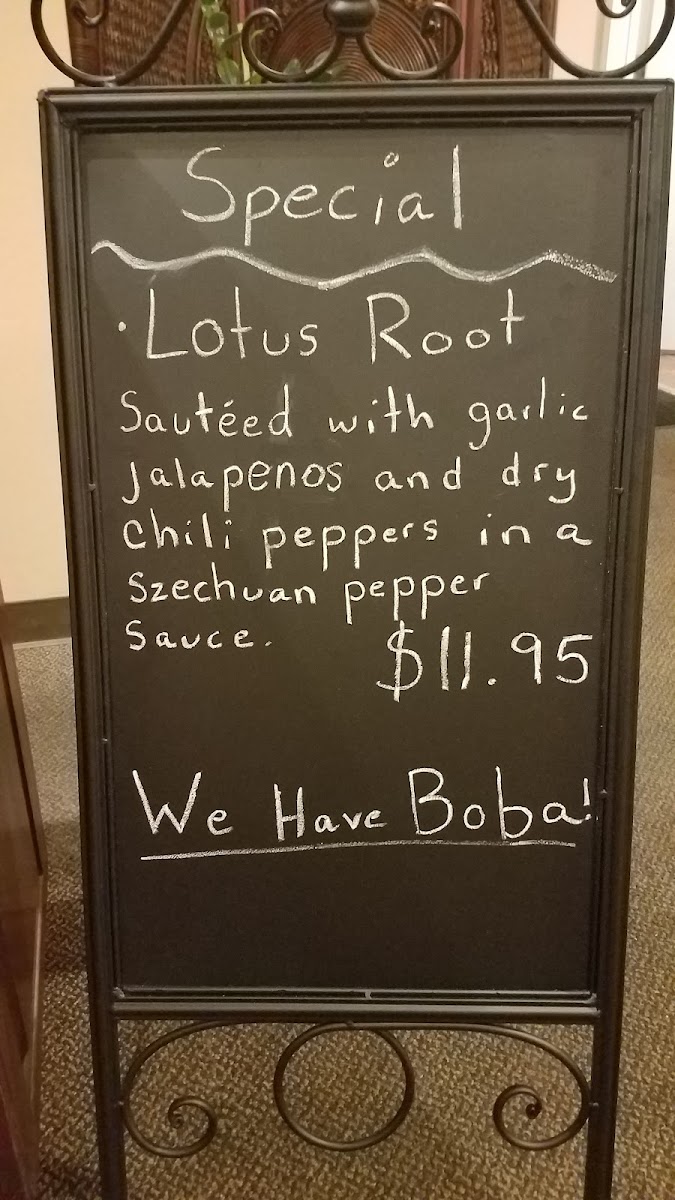 Special
· Lotus Root
Sautéed with garlic
Jalapenos and dry
chili peppers in a
Szechuan pepper
Sauce.
$11.95
We Have Boba!